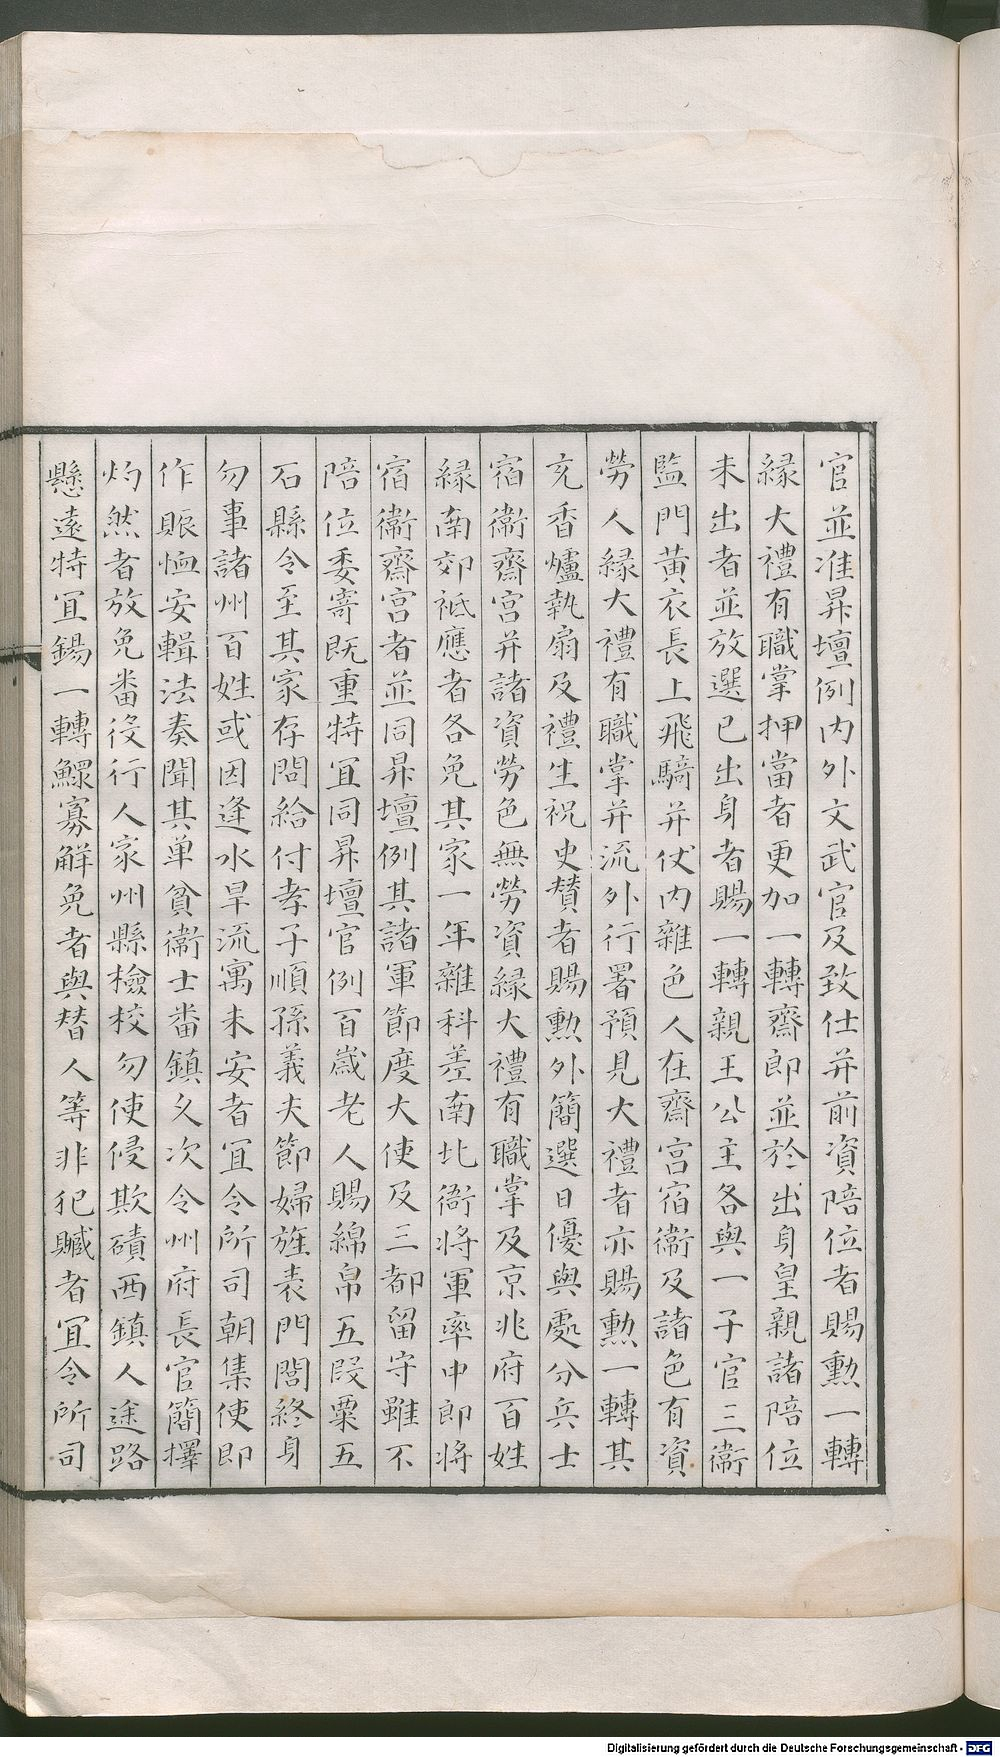 官並准昇壇例内外文武官及致仕并前資陪位者賜勲一轉
縁大禮有職掌押當者更加一轉齋郎並於出身皇親諸陪位
未出者並放選已出身者賜一轉親王公主各與一子官三衞
監門黄衣長上飛騎并仗内雜色人在齋宫宿衞及諸色有資
勞人縁大禮有職掌并流外行署預見大禮者亦賜勲一轉其
充香爐執扇及禮生祝史賛者賜勲外簡選日優與處分兵士
宿衞齋宫并諸資勞色無勞資縁大禮有職掌及京兆府百姓
縁南郊祗應者各免其家一年雜科差南北衙將軍率中郎將
宿衞齋宫者並同昇壇例其諸軍節度大使及三都留守雖不
陪位委寄既重特冝同昇壇官例百歳老人賜綿帛五段粟五
石縣令至其家存問給付孝子順孫義夫節婦旌表門閭終身
勿事諸州百姓或因逢水旱流寓未安者冝令所司朝集使即
作賑恤安輯法奏聞其单貧衞士番鎮久次令州府長官簡擇
灼然者放免番役行人家州縣檢校勿使侵欺磧西鎮人途路
懸遠特冝錫一轉鰥寡觧免者與替人等非犯贓者冝令所司
Digitalisierung gefördert durch die Deutsche Forschungsgemeinschaft - DFG